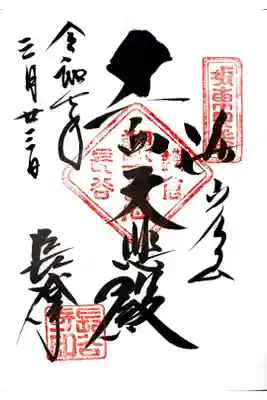 坂東四番
海光山
十一面大悲殿
鎌倉
長谷
令和
三月廿三日
長谷寺
長谷寺印